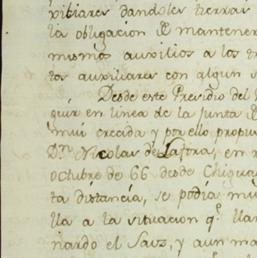 xiliares dandoles tierras
la obligacion de mantener
mismos auxilios a los tr
tos auxiliares con algun s
Desde este Presidio del
guir en linea de la Junta
mui crecida y por ello propus
Dn. Nicolas de Lafora, en
octubre de 66 desde Chigua
ta distancia, se podia mu
lla a la situacion q.e llam
nardo el Sauz, y aun ma